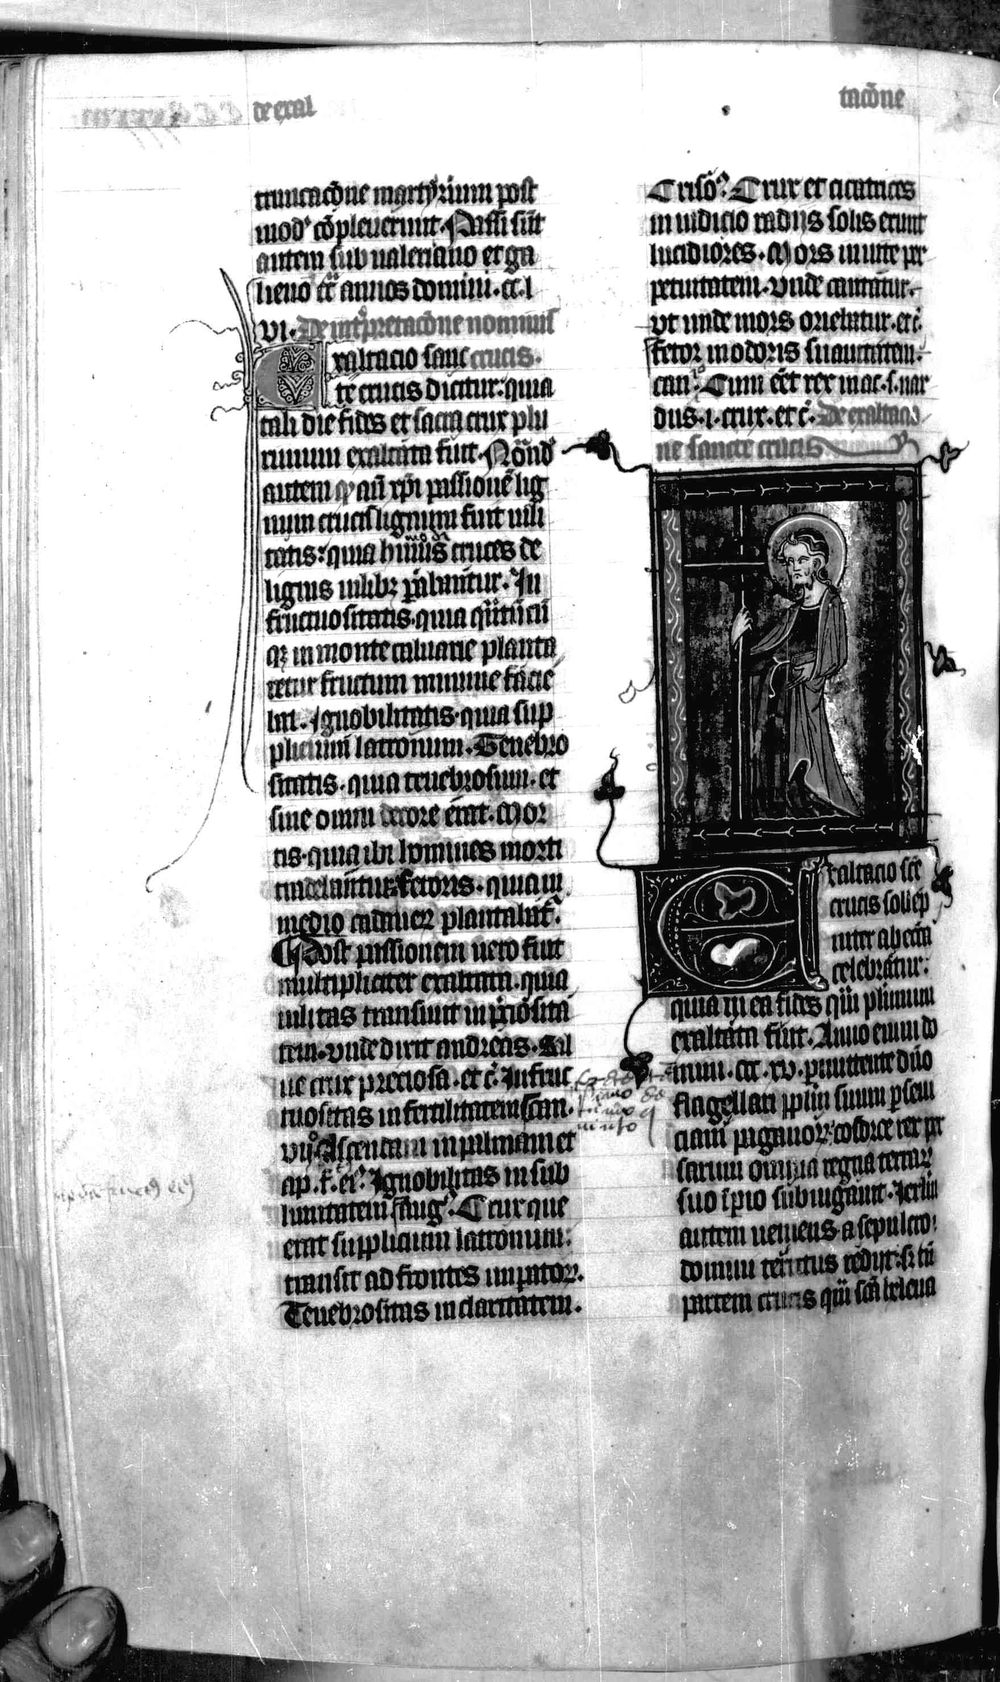 de exal
tacõne
truncacõne martyrium post
modũ cõpleuerunt. Passi sũt
autem sub ualeriano et ga
lieno cͬ annos domini. cc. l
vi. De int͛pretacõne nominis
Exaltacio sanc crucis.
te crucis dicitur: quia
tali die fides et sacra crux plu
rimum exaltata fuit. Notãdũ
autem qͥ añ xp̃i passionẽ lig
num crucis lignum fuit uili
tatis: quia huiusmodi cruces de
lignis uilibꝫ parabantur. In
fructuositatis. quia qͣntũcũ
qꝫ in monte caluarie planta
retur fructum minime facie
bat. Ignobilitatis. quia sup
plicium latronum. Tenebro
sitatis. quia tenebrosum. et
sine omni decore erat. Mor
tis. quia ibi homines morti
tradebantur. fetoris. quia in
medio cadauerꝝ plantabat͛.
Post passionem uero fuit
multipliciter exaltata. quia
uilitas transiuit in p̃ciosita
tem. vnde dixit andreas. Sal
ue crux preciosa. et c̃. Infruc
tuositas in fertilitatem. can.
vijͦ. Ascendam in palmam et
ap. f. eͥ. Ignobilitas in sub
limitatem. aug͛. Crux que
erat supplicium latronum:
transit ad frontes impatorꝝ.
Tenebrositas in claritatem.
Crisõ͛. Crux et cicatrices
in iudicio radijs solis erunt
lucidiores. Mors in uite per
petuitatem. vnde cantatur.
vt unde mors oriebatur. et c̃.
fetor in odoris suauitatem.
can. jͦ. Cum eẽt rex in ac. s. nar
dus. i. crux. et c̃. De exaltacio
ne sancte crucis
Exaltacio scẽ
crucis sollẽp
niter ab ecc̃ia
celebratur:
quia in ea fides qͣm plurimum
exaltata fuit. Anno enim do
mini. cc. xv. p̲mittente dño
flagellari pp̃lm suum p̲ seui
ciam paganorꝝ. cosdroe rex per
sarum omnia regna terrarꝝ
suo ĩp̲io subiugauit. Jerlm̃
autem ueniens. a sepulcro
domini territus redijt: sꝫ tñ
partem crucis qͣm scã helena